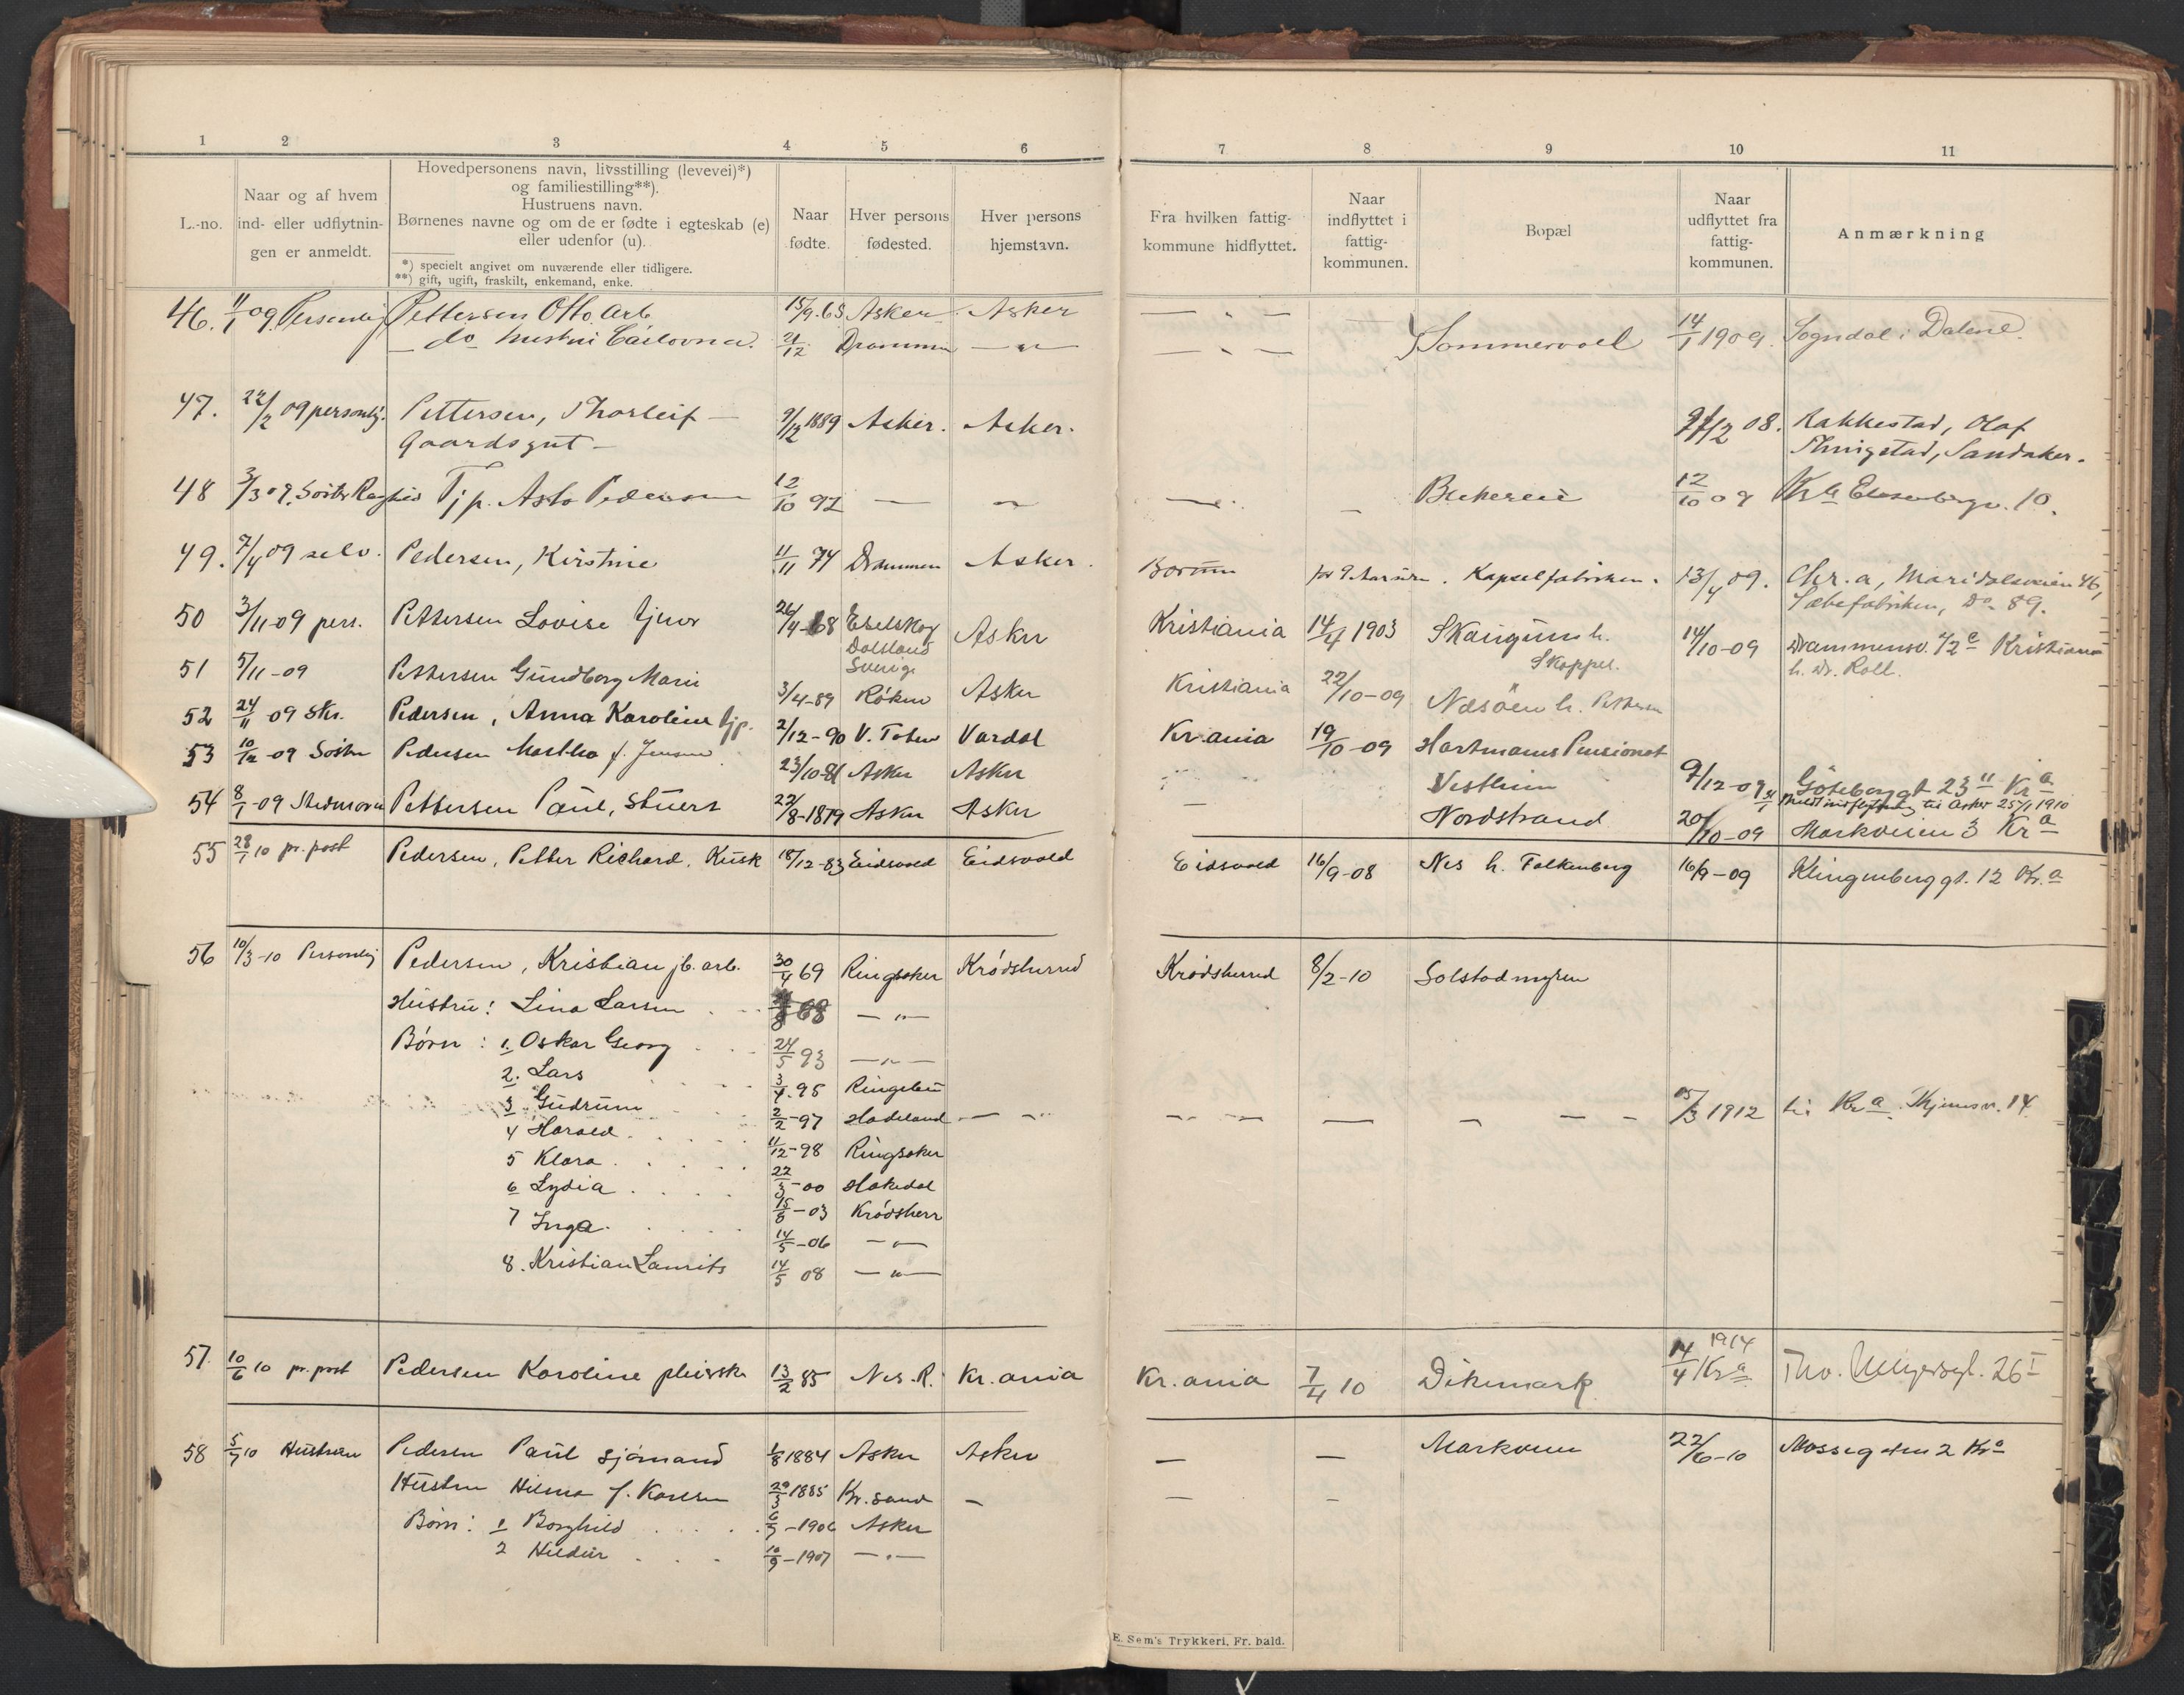 1 2 3 4 5 6 7 8 9 10 11
L.-no.
Naar og af hvem
ind- eller udflytnin-
gen er anmeldt.
Hovedpersonens navn, livsstilling (levevei)*)
og familiestilling**).
Hustruens navn.
Børnenes navne og om de er fødte i egteskab (e)
eller udenfor (u).
*) specielt angivet om nuværende eller tidligere.
**) gift, ugift, fraskilt, enkemand, enke.
Naar
fødte.
Hver persons
fødested.
Hver persons
hjemstavn.
Fra hvilken fattig-
kommune hidflyttet.
Naar
indflyttet i
fattig-
kommunen.
Bopæl
Naar
udflyttet fra
fattig-
kommunen.
Anmærkning
46. 11/1 09. Personlig Pettersen Otto Arb. 15/9. 63 Asker Asker — " —
— do hustru 21/12 Drammen — " — — " — Sommervold 14/1 1909. Sogndal i Dalene
47. 22/2 09 personlig. Pettersen, Thorleif — 9/12 1889 Asker. Asker. /2 08. Rakkestad, Olaf
Gaardsgut — Sandaker.
48 3/3 09. Søster Ragnhild Tjp. Asta Pedersen 12/10 92 — — 12/10 09 Kr.a 10.
49. 7/4 09 selv. Pedersen, Kirstine 11/11 74 Drammen Asker. Bærum for 9 Aar siden. Kapselfabriken. 13/4 09. Chr.a, Maridalsveien 46,
Sæbefabriken, Do 89.
50 3/11-09 pers. Pettersen Lovise tjener 26/4-68 Edelskog Asker Kristiania 14/4 1903 Skaugum h. 14/10-09 Drammensv. 42 c Kristiania
Dalsland
Sverige Skoppel. h. Dr. Roll.
51 5/11-09 Pettersen Gundborg Marie 3/4-89 Røken Asker Kristiania 22/10-09 Nesøen h. Pettersen
52 24/11 09 Skr. Pedersen, Anna Karoline tjp. 2/12-90 V. Toten Vardal Kr.ania 19/10-09 Hartmanns Pensionat
53 10/12-09 Søster Pedersen Martha f. Jensen 23/10-81 Asker Asker Vestheim 9/12-09 Göteborggt 23 II Kr.a
meldt indflytning til Asker 25/1 1910
54 8/1-09 Stedmoren Pettersen Paul, Stuert 22/8-1879 Asker Asker — Nordstrand 20/10-09 Markveien 3 Kr.a
55 28/1 10 pr. post Pedersen, Petter Richard, Kusk 18/12-83 Eidsvold Eidsvold Eidsvold 16/9-08 Nes h. Falkenberg 16/9-09 Klingenberggt. 12 Kr.a
56 10/3-10 Personlig Pedersen, Kristian jb. arb. 30/4 69 Ringsaker Krødsherred Krødsherred 8/2-10 Solstadmyren
Hustru: Lina Larsen 68 — " —
Børn: 1. Oskar Georg 24/5 93 — " —
2. Lars 3/4-95 Ringebu
3 Gudrun 2/2-97 Hadeland — " — — " — — — — — 15/3 1912 til Kr.a 14
4 Harald 11/12-98 Ringsaker
5 Klara 22/3-00 Hakedal
6 Lydia 15/8-03 Krødsherr
7 Inga 14/5-06 — " —
8. Kristian Laurits 14/5 08 — " —
57. 10/6 10 pr. post Pedersen Karoline pleierske 13/2 85 Nes. R. Kr.ania Kr.ania 7/4 10 Dikemark 14/4 1914 Kr.a Tho. Meyersgt. 26 I
58 5/7 10 Hustruen Pedersen Paul sjømand 1/8 1884 Asker Asker — — Markveien 22/6-10 Mossegaten 2 Kr.a
Hustru Hilma f. Karlsen 20/3 1885 Kr.sand — — —
Børn: 1 Borghild 6/7-1906 Asker
2 Hildur 10/9-1907 — " —
E. Sem's Trykkeri, Fr.hald.